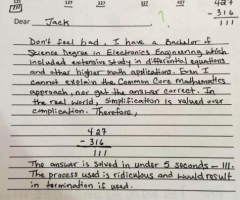 127 127 127 127 427
- 316
111
Dear Jack
Don't feel bad. I have a Bachelor of
Science Degree in Electronics Engineering which
included extensive study in differential equations
and other higher math applications. Even I
cannot explain the Common Core Mathematics
approach, nor get the answer correct. In
the real world, simplification is valued over
complication. Therefore,
427
- 316
111
The answer is solved in under 5 seconds — 111.
The process used is ridiculous and would result
in termination if used.